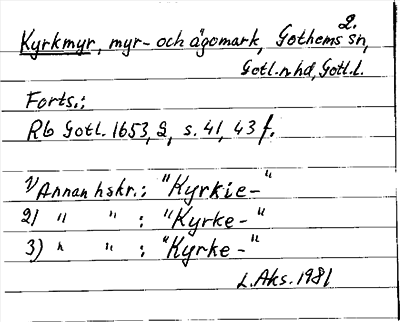 2.
Kyrkmyr, myr- och ägomark, Gothems sn,
Gotl. n. hd, Gotl. l.
Forts.:
Rb Gotl. 1653, 2, s. 41, 43 f.
1) Annan hskr.: "Kyrkie-"
2) " " : "Kyrke-"
3) " " : "Kyrke-"
L. Aks. 1981